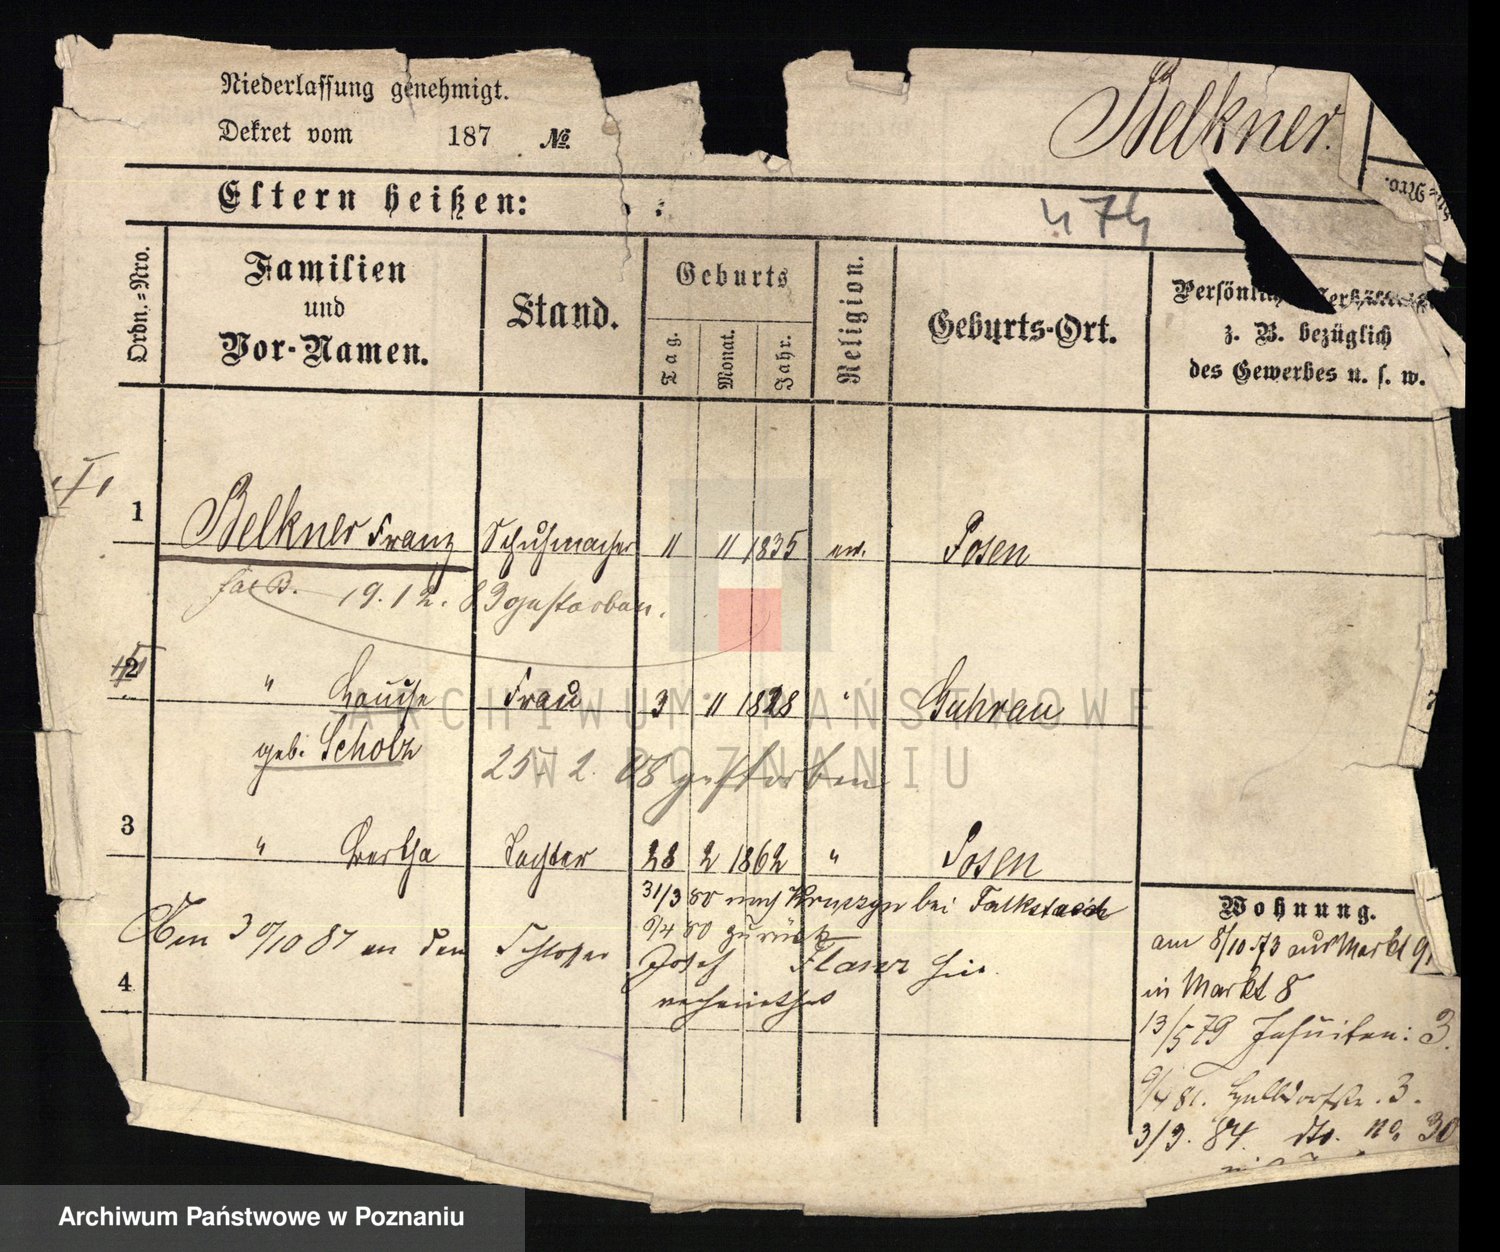 Niederlassung genehmigt.
Dekret vom 187 №.
Belkner.
Eltern heißen:
474
Ordn.=Nro.
Familien
und
Vor-Namen.
Stand.
Geburts
Tag.
Monat.
Jahr.
Religion.
Geburts-Ort.
z. B. bezüglich
des Gewerbes u. s. w.
1 Belkner Franz Schuhmacher " " 1835 ev. Posen
19. 12. 83 gestorben.
2 " Louise Frau 3 " 1828 " Guhrau
geb. Scholz
25. 2. 88 gestorben
3 " Bertha Tochter 28 2 1862 " Posen
31/3 80 nach bei
6/4 80 zurück
Am 30/10 87 an den Schlosser Josef hier
4 vermiethet
Wohnung.
am 8/10 73 aus Markt 9,
in Markt 8
13/5 79 Jesuiten: 3.
9/4 81. 3.
3/3. 84. dto. No 30
ARCHIWUM PAŃSTWOWE
W POZNANIU
Archiwum Państwowe w Poznaniu